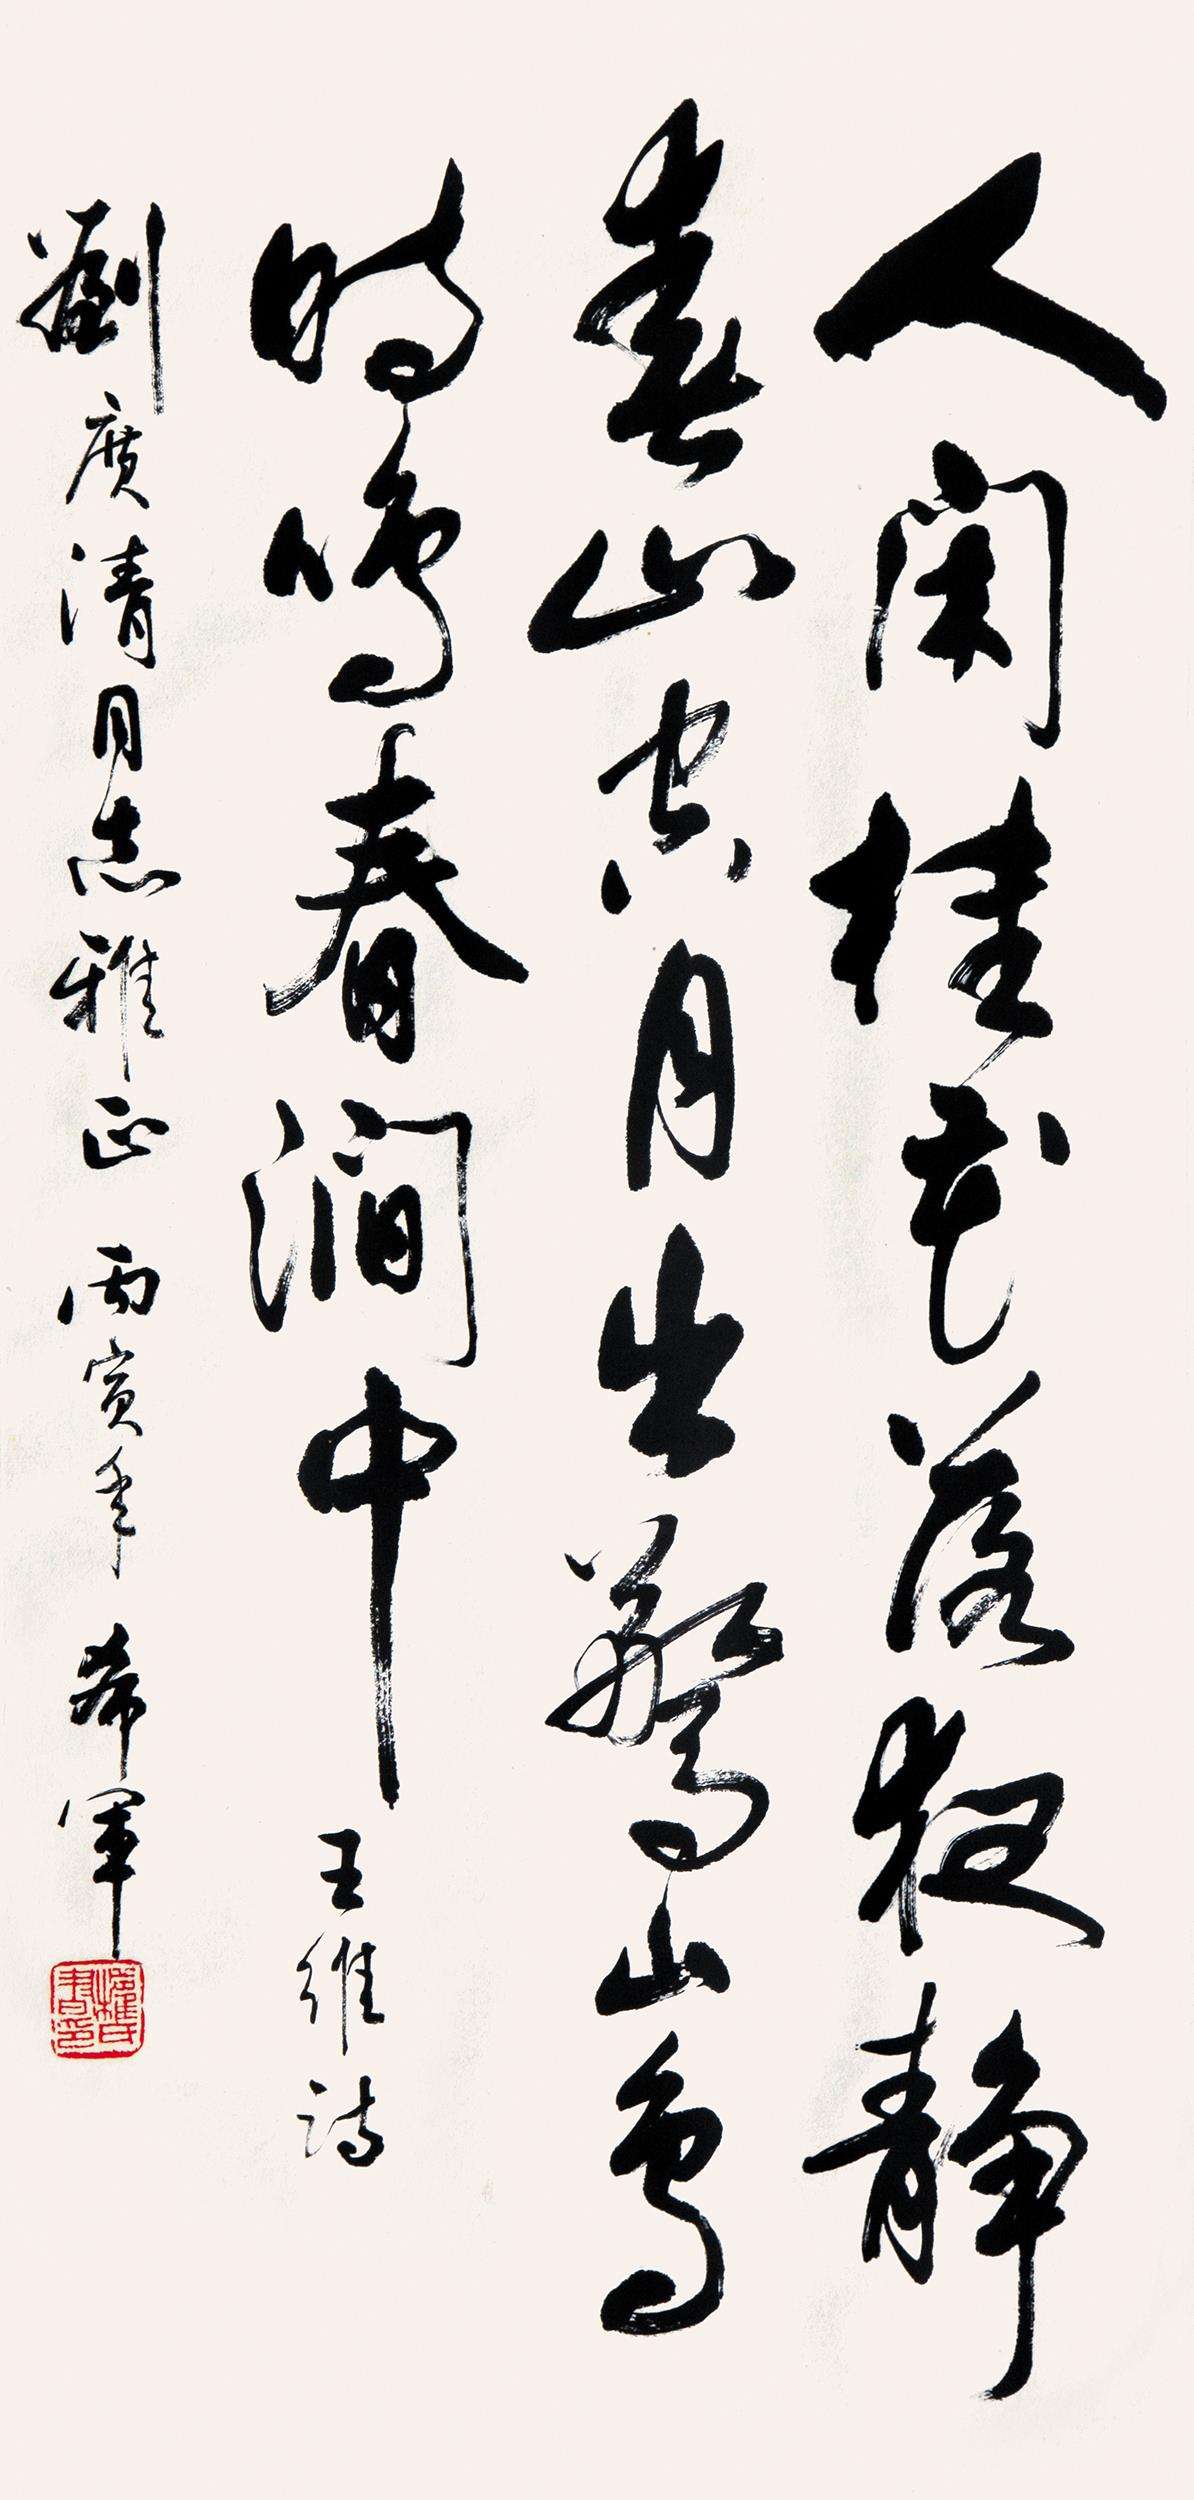 人閑桂花落夜静
春山空月出驚山鳥
時鳴春澗中
王維詩
劉廣清同志雅正 丙寅年 希軍